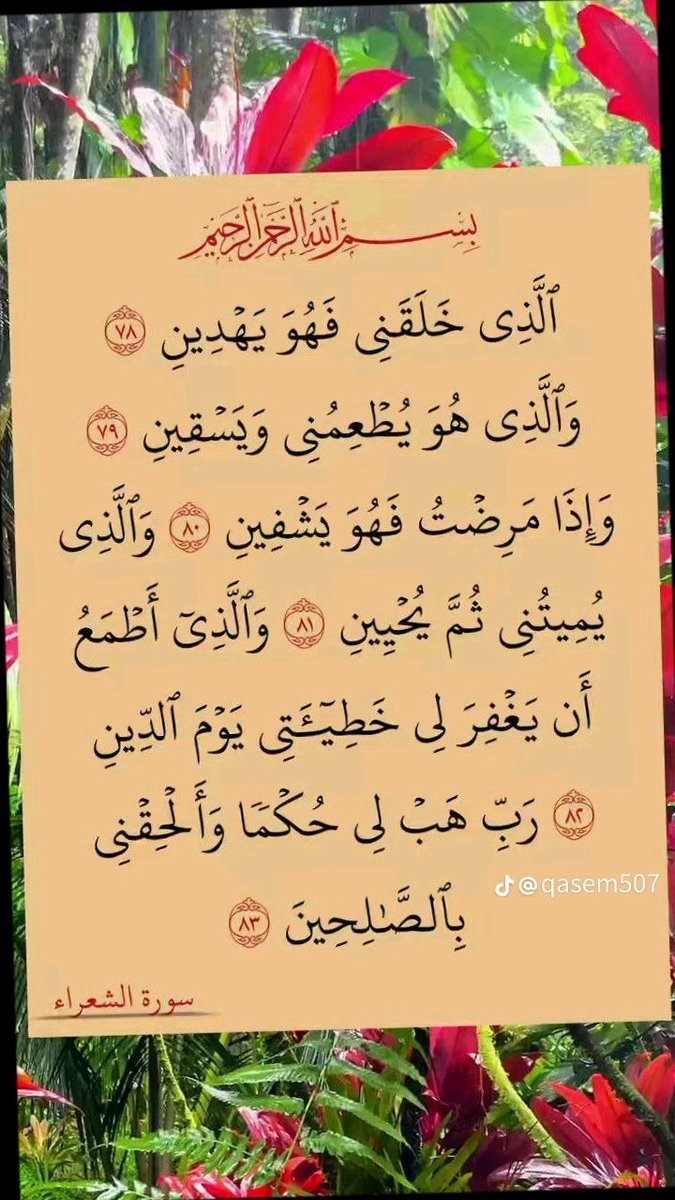 بِسْمِ اللَّهِ الرَّحْمَٰنِ الرَّحِيمِ
ٱلَّذِى خَلَقَنِى فَهُوَ يَهْدِينِ ٧٨
وَٱلَّذِى هُوَ يُطْعِمُنِى وَيَسْقِينِ ٧٩
وَإِذَا مَرِضْتُ فَهُوَ يَشْفِينِ ٨٠ وَٱلَّذِى
يُمِيتُنِى ثُمَّ يُحْيِينِ ٨١ وَٱلَّذِىٓ أَطْمَعُ
أَن يَغْفِرَ لِى خَطِيٓـَٔتِى يَوْمَ ٱلدِّينِ
٨٢ رَبِّ هَبْ لِى حُكْمًا وَأَلْحِقْنِى
@qasem507
بِٱلصَّٰلِحِينَ ٨٣
سورة الشعراء